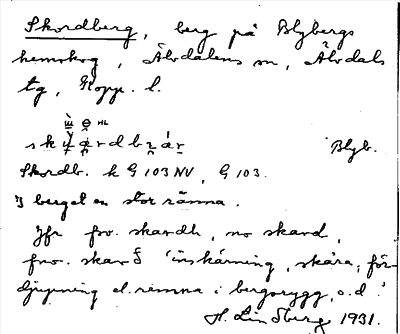 Skordberg, berg på Blybergs
hemskog, Älvdalens sn, Älvdals
tg, Kopp. l.
Blyb.
Skordb. k G 103 NV, G 103.
I berget en stor ränna.
Jfr fsv. skardh, no skard,
fno. skarð 'inskärning, skåra, för-
djupning el. rämna i bergsrygg, o.d.'
H. Lindberg 1931.